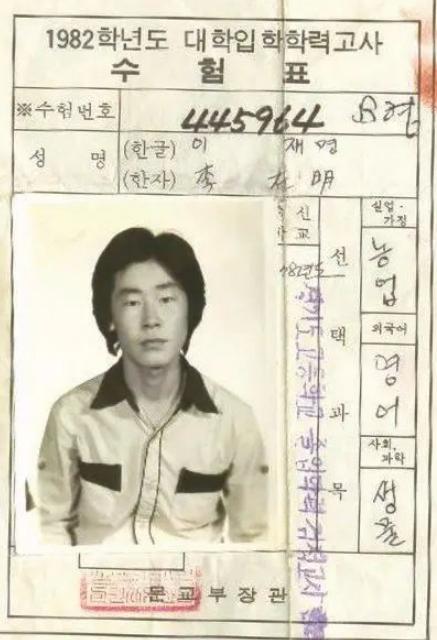 1982학년도 대학입학학력고사
수험표
※수험번호 445964
성명 (한글) 이재명
(한자) 李在明
선택과목
실업·가정 농업
외국어 영어
사회,과학 생물
문교부장관